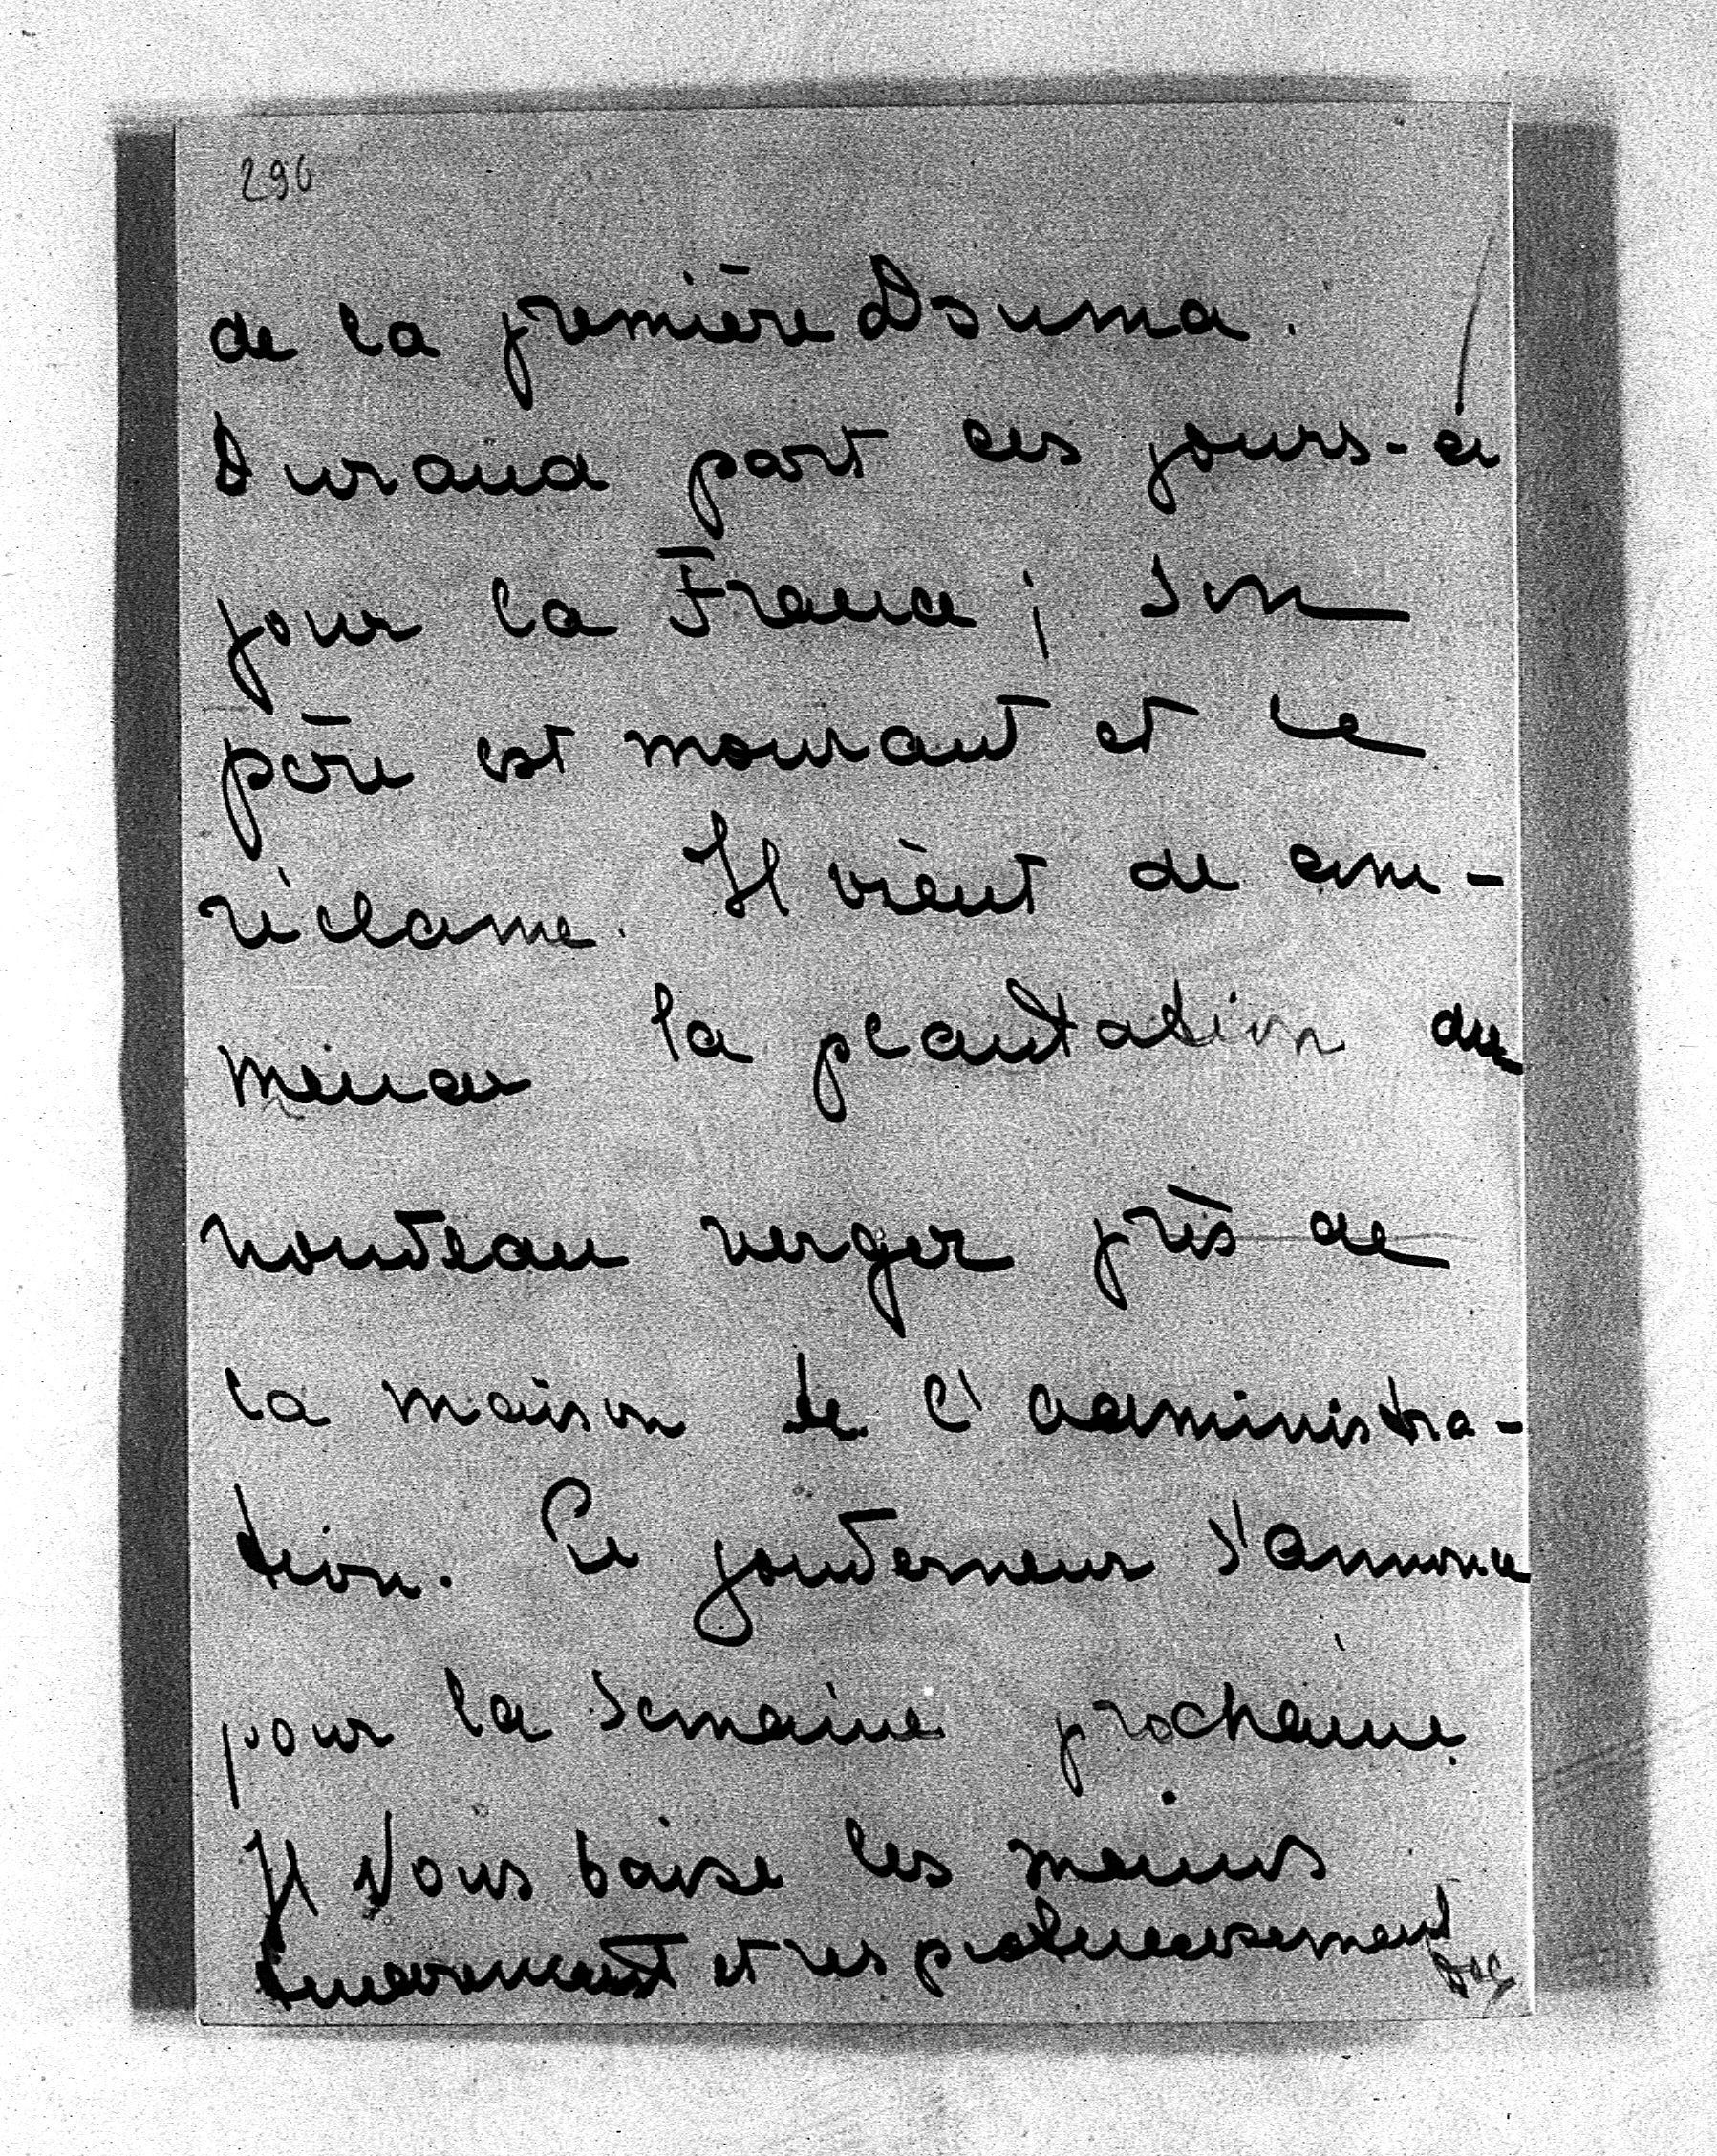 296
de la première Douma.
Durand part ces jours-ci
pour la France; son
père est mourant et le
réclame. Il vient de com-
mencer la plantation du
nouveau verger près de
la maison de l'administra-
tion. Le gouverneur s'annonce
pour la semaine prochaine.
Il Vous baise les mains
tendrement et respectueusement